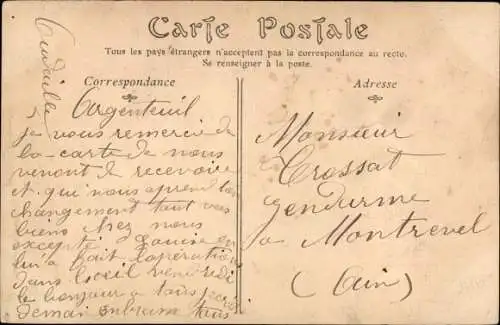 Carte Postale
Tous les pays étrangers n'acceptent pas la correspondance au recto.
Se renseigner à la poste.
Correspondance
Adresse
Argenteuil
je vous remercie de
la carte de nous
venont de recevoire
et qui nous aprend le
changement tout vas
biens chez nous
excepté Louise on
lui a fait l'operation
dans l'oeil vendredi
le bonjour a tous
demai enbrasse tous
Monsieur
Crossat
Gendarme
a Montrevel
(Ain)